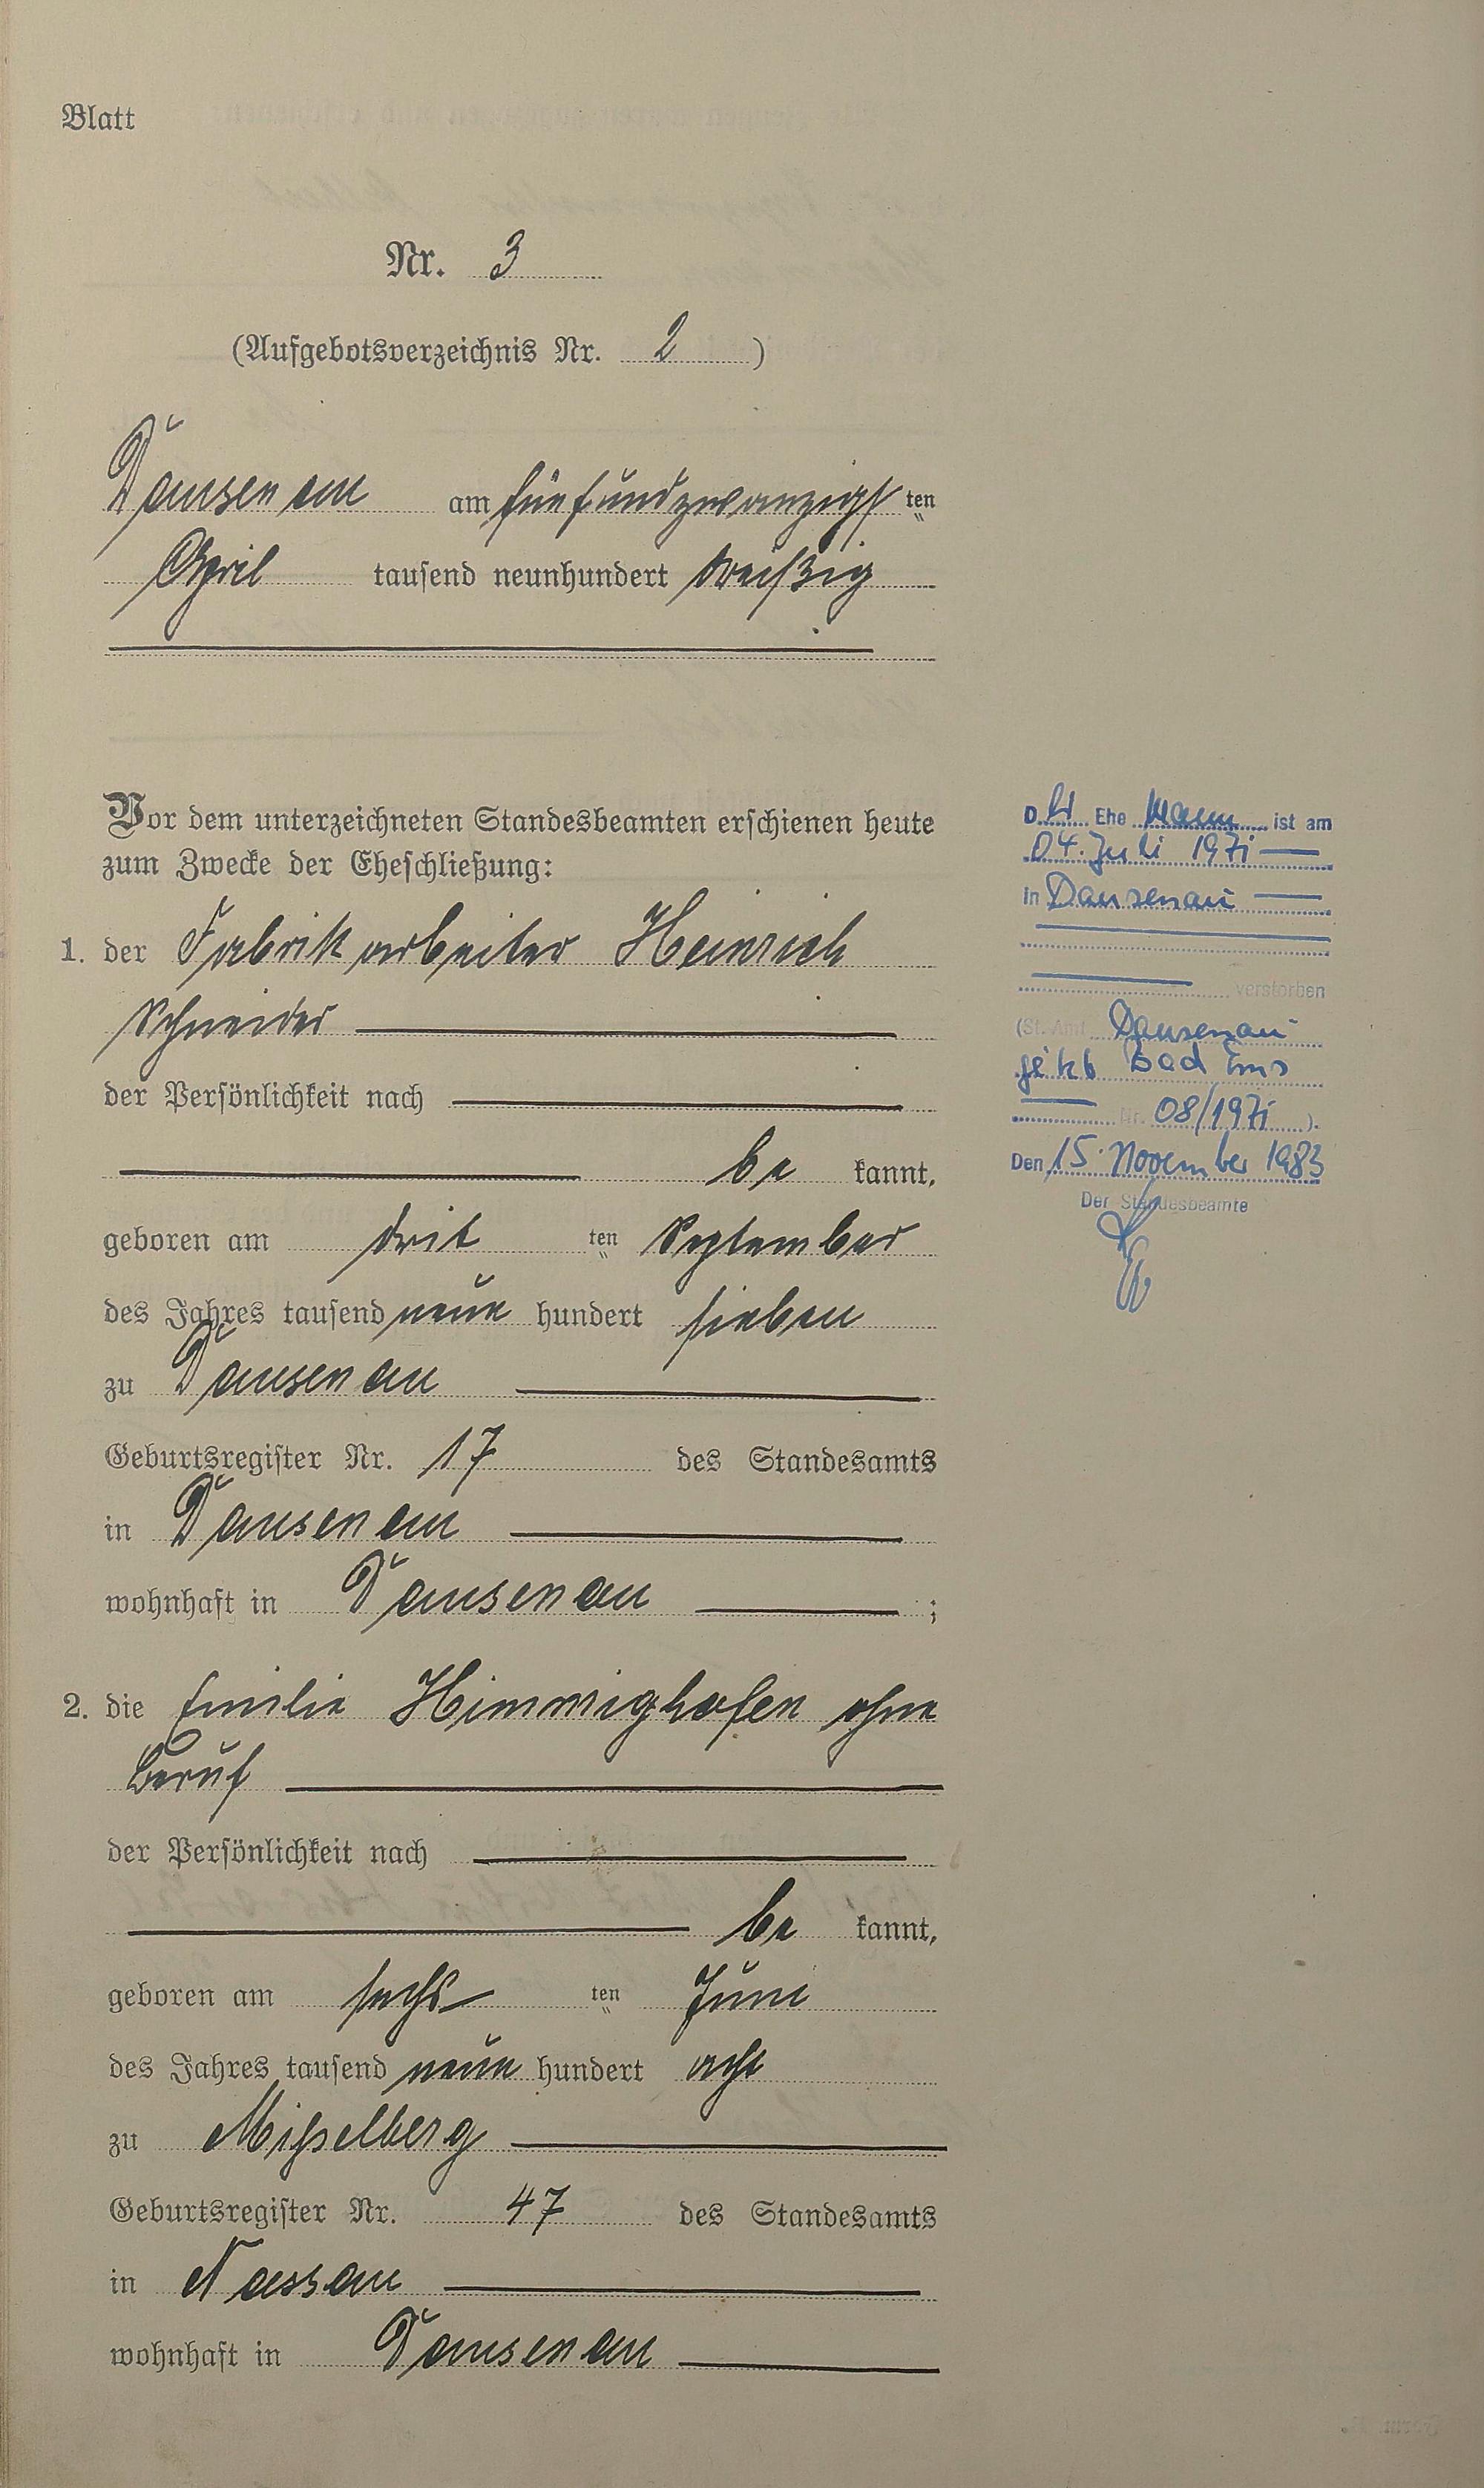 Blatt
Nr. 3
(Aufgebotsverzeichnis Nr. 2 )
Dausenau am fünfundzwanzigsten
April tausend neunhundert dreißig
Vor dem unterzeichneten Standesbeamten erschienen heute
zum Zwecke der Eheschließung:
1. der Fabrikarbeiter Heinrich
Schneider
der Persönlichkeit nach
be kannt,
geboren am drit ten September
des Jahres tausend neun hundert sieben
zu Dausenau
Geburtsregister Nr. 17 des Standesamts
in Dausenau
wohnhaft in Dausenau ;
2. die Emilie Himmighofen ohne
Beruf
der Persönlichkeit nach
be kannt,
geboren am sechs ten Juni
des Jahres tausend neun hundert acht
zu Misselberg
Geburtsregister Nr. 47 des Standesamts
in Nassau
wohnhaft in Dausenau
Der Ehe mann ist am
04. Juli 1971
in Dausenau
verstorben
(St. Amt Dausenau
jetzt Bad Ems
Nr. 08/1971 ).
Den 15. November 1983
Der Standesbeamte